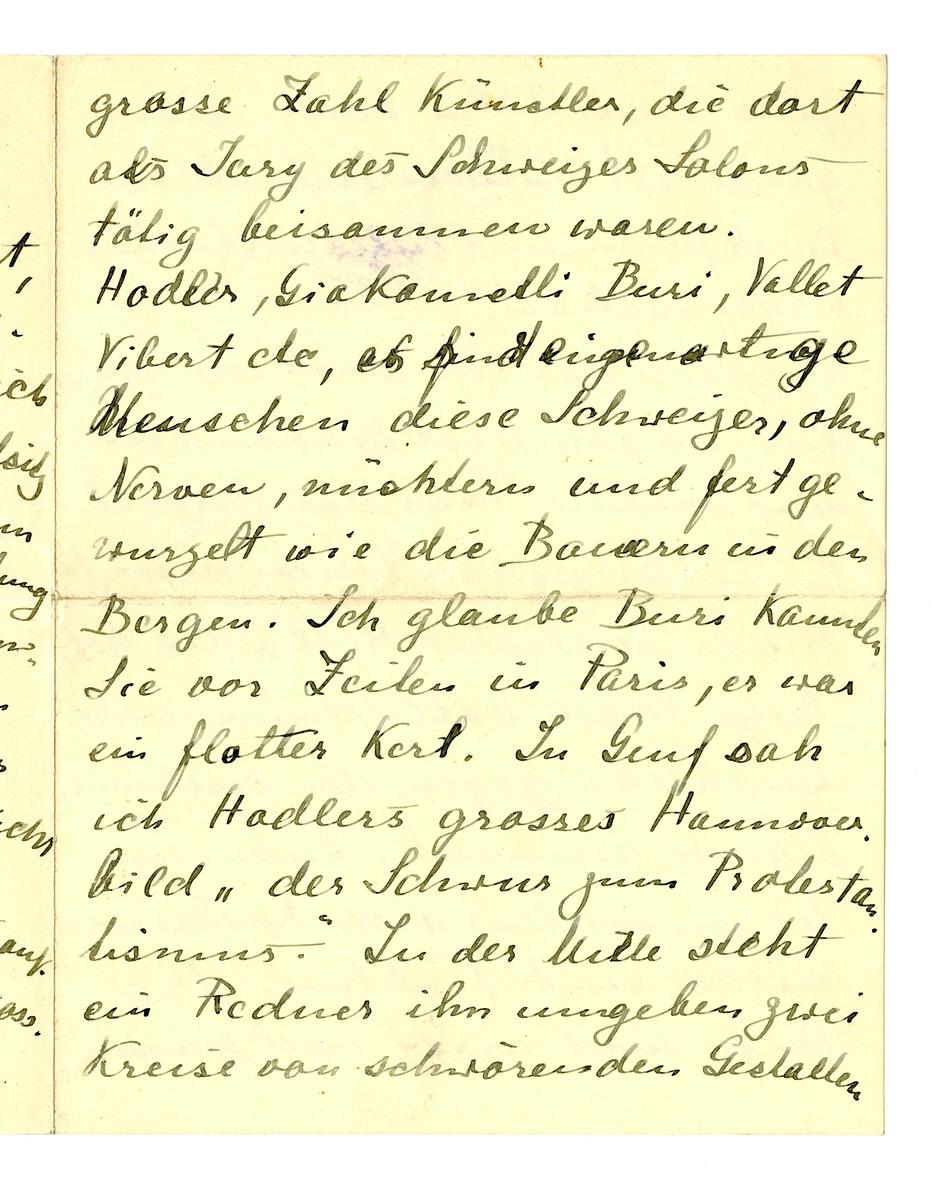 grosse Zahl Künstler, die dort
als Jury des Schweizer Salons
tätig beisammen waren.
Hodler, Giakometti Buri, Vallet
Vibert etc, es sind eigenartige
Menschen diese Schweizer, ohne
Nerven, nüchtern und fest ge-
wurzelt wie die Bauern in den
Bergen. Ich glaube Buri kannten
Sie vor Zeiten in Paris, er war
ein flotter Kerl. In Genf sah
ich Hodlers grosses Hannover-
bild „der Schwur zum Protestan-
tismus." In der Mitte steht
ein Redner ihn umgeben zwei
Kreise von schwörenden Gestalten